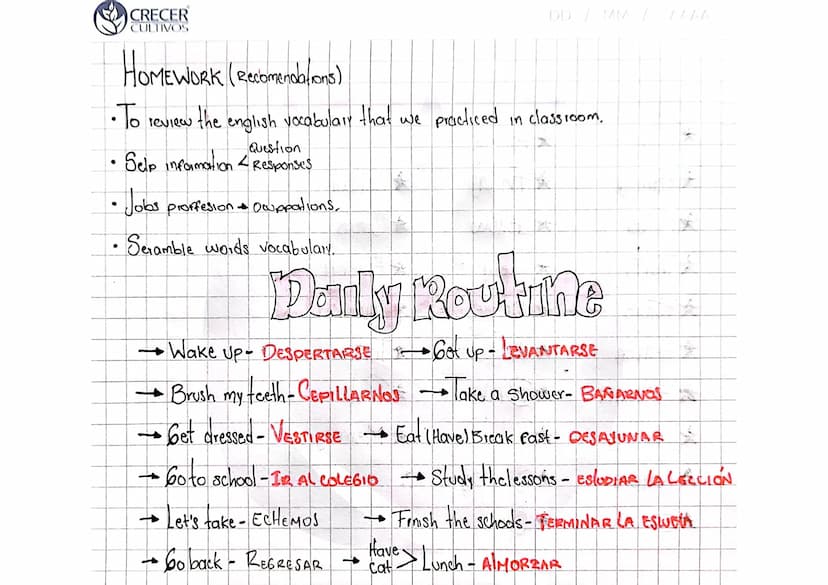 CRECER
CULTIVOS
DD / MM / AAAA
HOMEWORK (Recomendations)
• To review the english vocabulary that we practiced in classroom.
• Self information < Question
Responses
• Jobs proffesion → Owppations.
• Scramble words vocabulary.
Daily Routine
→ Wake up - DESPERTARSE → Get up - LEVANTARSE
→ Brush my teeth - CEPILLARNOS → Take a shower - BAÑARNOS
→ Get dressed - VESTIRSE → Eat (Have) Break fast - DESAJUNAR
→ Go to school - IR AL COLEGIO → Study the lessons - ESTUDIAR LA LECCIÓN
→ Let's take - ECHEMOS → Finish the schools - TERMINAR LA ESWELA
→ Go back - REGRESAR → Have
Eat > Lunch - AlMORZAR